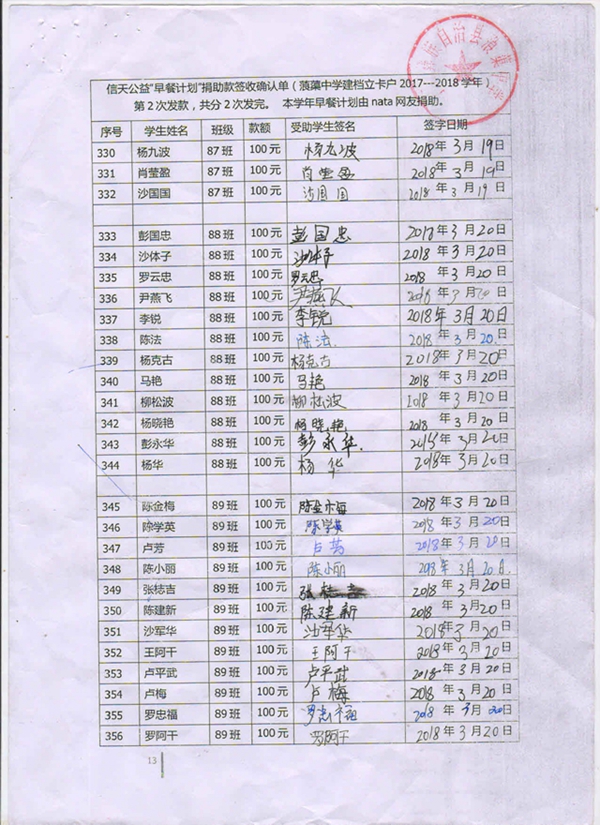 族自治县蒗蕖
信天公益"早餐计划"捐助款签收确认单（蒗蕖中学建档立卡户 2017---2018 学年）
第 2 次发款，共分 2 次发完。 本学年早餐计划由 nata 网友捐助。
序号 学生姓名 班级 款额 受助学生签名 签字日期
330 杨九波 87 班 100 元 杨九波 2018 年 3 月 19 日
331 肖莹盈 87 班 100 元 肖莹盈 2018 年 3 月 19 日
332 沙国国 87 班 100 元 沙国国 2018 年 3 月 19 日
333 彭国忠 88 班 100 元 彭国忠 2018 年 3 月 20 日
334 沙体子 88 班 100 元 沙体子 2018 年 3 月 20 日
335 罗云忠 88 班 100 元 罗云忠 2018 年 3 月 20 日
336 尹燕飞 88 班 100 元 尹燕飞 2018 年 3 月 20 日
337 李锐 88 班 100 元 李锐 2018 年 3 月 20 日
338 陈法 88 班 100 元 陈法 2018 年 3 月 20 日
339 杨克古 88 班 100 元 杨克古 2018 年 3 月 20 日
340 马艳 88 班 100 元 马艳 2018 年 3 月 20 日
341 柳松波 88 班 100 元 柳松波 2018 年 3 月 20 日
342 杨晓艳 88 班 100 元 杨晓艳 2018 年 3 月 20 日
343 彭永华 88 班 100 元 彭永华 2018 年 3 月 20 日
344 杨华 88 班 100 元 杨华 2018 年 3 月 20 日
345 陈金梅 89 班 100 元 陈金梅 2018 年 3 月 20 日
346 陈学英 89 班 100 元 陈学英 2018 年 3 月 20 日
347 卢芳 89 班 100 元 卢芳 2018 年 3 月 20 日
348 陈小丽 89 班 100 元 陈小丽 2018 年 3 月 20 日
349 张梽吉 89 班 100 元 张梽吉 2018 年 3 月 20 日
350 陈建新 89 班 100 元 陈建新 2018 年 3 月 20 日
351 沙军华 89 班 100 元 沙军华 2018 年 3 月 20 日
352 王阿干 89 班 100 元 王阿干 2018 年 3 月 20 日
353 卢平武 89 班 100 元 卢平武 2018 年 3 月 20 日
354 卢梅 89 班 100 元 卢梅 2018 年 3 月 20 日
355 罗忠福 89 班 100 元 罗忠福 2018 年 3 月 20 日
356 罗阿干 89 班 100 元 罗阿干 2018 年 3 月 20 日
13